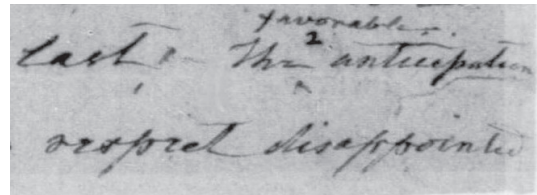 favorable
last The 2 anticipation
respect disappointed